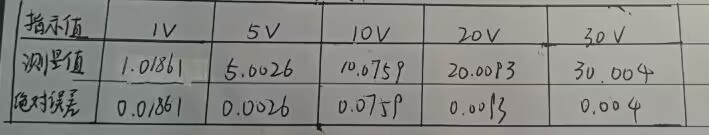 指示值 1V 5V 10V 20V 30V
测量值 1.01861 5.0026 10.0759 20.0093 30.004
绝对误差 0.01861 0.0026 0.0759 0.0093 0.004